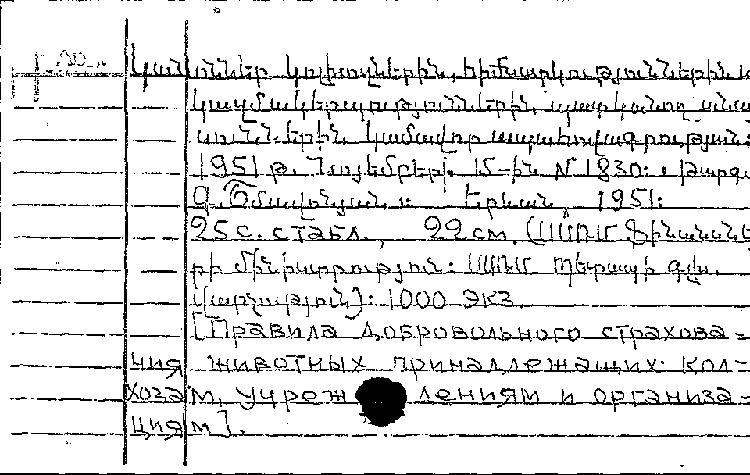 Կանոններ կոլխոզներին, հիմնարկություններին և
կազմակերպություններին պատկանող անա-
սունների կամավոր ապահովագրության:
1951 թ. նոյեմբերի 15-ին N 1830: Թարգ.
Գ. Շմավոնյան: Երևան, 1951:
25 с. с табл., 22 см. (ՍՍՌՄ Ֆինանսնե-
րի մինիստրություն: ՍՍՌՄ պետապի գլխ.
վարչություն): 1000 экз.
[Правила добровольного страхова=
ния животных принадлежащих кол=
хозам, учреждениям и организа=
циям].